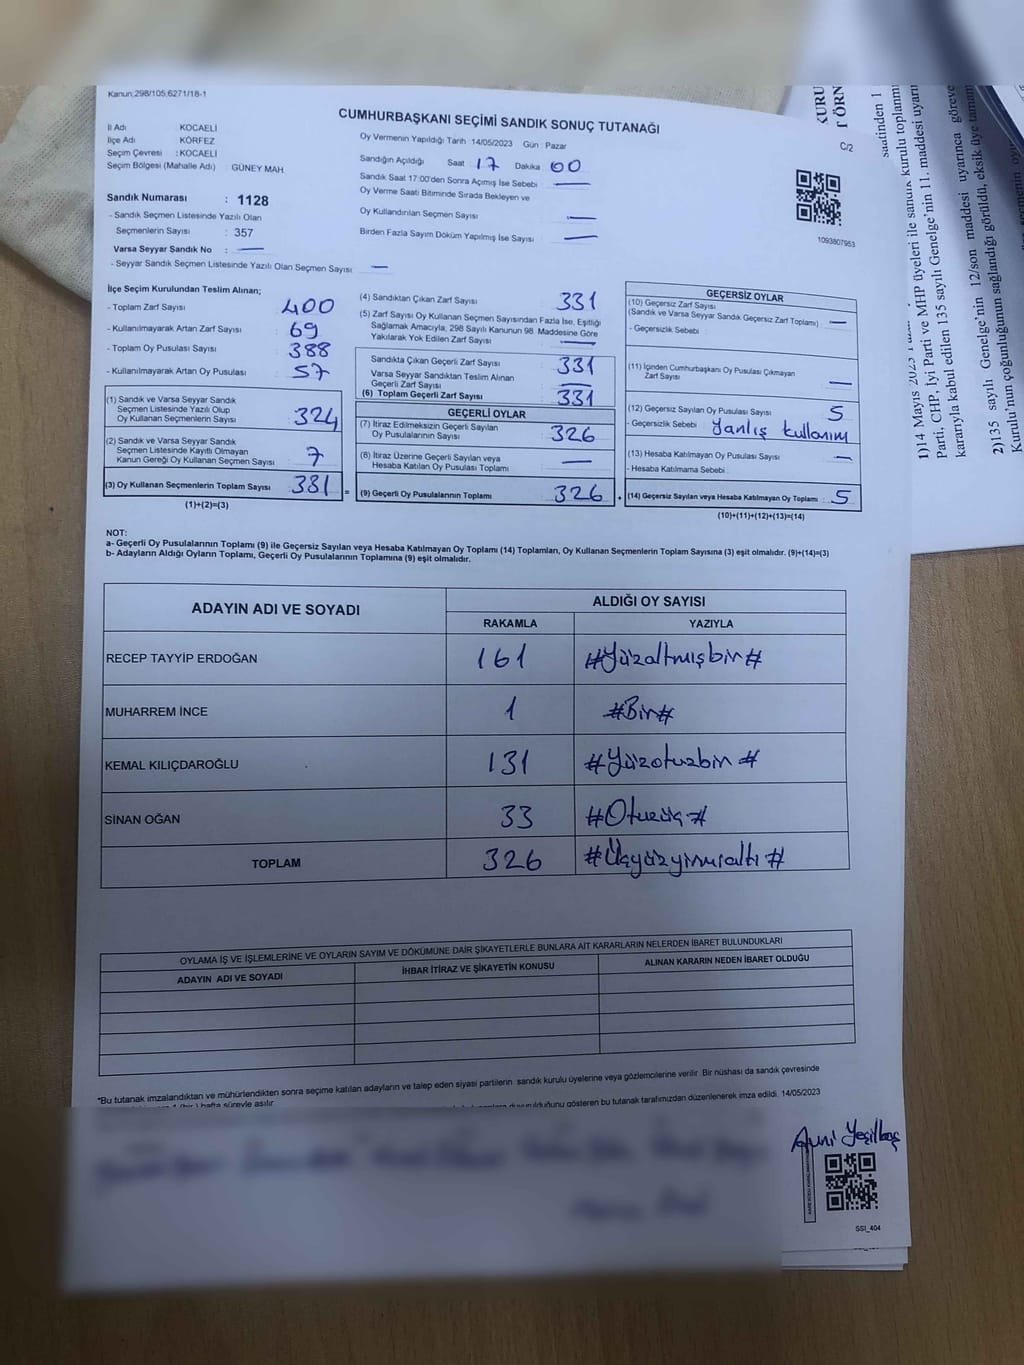 Kanun:298/105;6271/18-1
CUMHURBAŞKANI SEÇİMİ SANDIK SONUÇ TUTANAĞI
C/2
İl Adı : KOCAELİ
İlçe Adı : KÖRFEZ
Seçim Çevresi : KOCAELİ
Seçim Bölgesi (Mahalle Adı) : GÜNEY MAH.
Sandık Numarası : 1128
- Sandık Seçmen Listesinde Yazılı Olan
Seçmenlerin Sayısı : 357
Varsa Seyyar Sandık No : —
- Seyyar Sandık Seçmen Listesinde Yazılı Olan Seçmen Sayısı —
Oy Vermenin Yapıldığı Tarih 14/05/2023 Gün : Pazar
Sandığın Açıldığı Saat 17 Dakika 00
Sandık Saat 17:00'den Sonra Açımış İse Sebebi —
Oy Verme Saati Bitiminde Sırada Bekleyen ve
Oy Kullandırılan Seçmen Sayısı —
Birden Fazla Sayım Döküm Yapılmış İse Sayısı —
1093807953
İlçe Seçim Kurulundan Teslim Alınan;
- Toplam Zarf Sayısı 400
- Kullanılmayarak Artan Zarf Sayısı 69
- Toplam Oy Pusulası Sayısı 388
- Kullanılmayarak Artan Oy Pusulası 57
(1) Sandık ve Varsa Seyyar Sandık
Seçmen Listesinde Yazılı Olup
Oy Kullanan Seçmenlerin Sayısı 324
(2) Sandık ve Varsa Seyyar Sandık
Seçmen Listesinde Kayıtlı Olmayan
Kanun Gereği Oy Kullanan Seçmen Sayısı 7
(3) Oy Kullanan Seçmenlerin Toplam Sayısı 331 =
(1)+(2)=(3)
(4) Sandıktan Çıkan Zarf Sayısı 331
(5) Zarf Sayısı Oy Kullanan Seçmen Sayısından Fazla İse, Eşitliği
Sağlamak Amacıyla, 298 Sayılı Kanunun 98. Maddesine Göre
Yakılarak Yok Edilen Zarf Sayısı —
Sandıkta Çıkan Geçerli Zarf Sayısı 331
Varsa Seyyar Sandıktan Teslim Alınan
Geçerli Zarf Sayısı —
(6) Toplam Geçerli Zarf Sayısı 331
GEÇERLİ OYLAR
(7) İtiraz Edilmeksizin Geçerli Sayılan
Oy Pusulalarının Sayısı 326
(8) İtiraz Üzerine Geçerli Sayılan veya
Hesaba Katılan Oy Pusulası Toplamı —
(9) Geçerli Oy Pusulalarının Toplamı 326 +
GEÇERSİZ OYLAR
(10) Geçersiz Zarf Sayısı
(Sandık ve Varsa Seyyar Sandık Geçersiz Zarf Toplamı) —
- Geçersizlik Sebebi :
(11) İçinden Cumhurbaşkanı Oy Pusulası Çıkmayan
Zarf Sayısı —
(12) Geçersiz Sayılan Oy Pusulası Sayısı 5
- Geçersizlik Sebebi : Yanlış kullanım
(13) Hesaba Katılmayan Oy Pusulası Sayısı —
- Hesaba Katılmama Sebebi :
(14) Geçersiz Sayılan veya Hesaba Katılmayan Oy Toplamı : 5
(10)+(11)+(12)+(13)=(14)
NOT:
a- Geçerli Oy Pusulalarının Toplamı (9) ile Geçersiz Sayılan veya Hesaba Katılmayan Oy Toplamı (14) Toplamları, Oy Kullanan Seçmenlerin Toplam Sayısına (3) eşit olmalıdır. (9)+(14)=(3)
b- Adayların Aldığı Oyların Toplamı, Geçerli Oy Pusulalarının Toplamına (9) eşit olmalıdır.
ADAYIN ADI VE SOYADI
ALDIĞI OY SAYISI
RAKAMLA YAZIYLA
RECEP TAYYİP ERDOĞAN 161 #Yüzaltmışbir#
MUHARREM İNCE 1 #Bir#
KEMAL KILIÇDAROĞLU 131 #Yüzotuzbir#
SİNAN OĞAN 33 #Otuzüç#
TOPLAM 326 #Üçyüzyirmialtı#
OYLAMA İŞ VE İŞLEMLERİNE VE OYLARIN SAYIM VE DÖKÜMÜNE DAİR ŞİKAYETLERLE BUNLARA AİT KARARLARIN NELERDEN İBARET BULUNDUKLARI
ADAYIN ADI VE SOYADI İHBAR İTİRAZ VE ŞİKAYETİN KONUSU ALINAN KARARIN NEDEN İBARET OLDUĞU
*Bu tutanak imzalandıktan ve mühürlendikten sonra seçime katılan adayların ve talep eden siyasi partilerin sandık kurulu üyelerine veya gözlemcilerine verilir. Bir nüshası da sandık çevresinde
(bir) hafta süreyle asılır.
duyurulduğunu gösteren bu tutanak tarafımızdan düzenlenerek imza edildi. 14/05/2023
Avni Yeşilbaş
SSI_404
KURU
T ÖRN
saatinden 1
1)14 Mayıs 2023
Parti, CHP, İyi Parti ve MHP üyeleri ile sandık kurulu toplanmı
kararıyla kabul edilen 135 sayılı Genelge'nin 11. maddesi uyarı
2)135 sayılı Genelge'nin 12/son maddesi uyarınca göreve
Kurulu'nun çoğunluğunun sağlandığı görüldü, eksik üye tamam